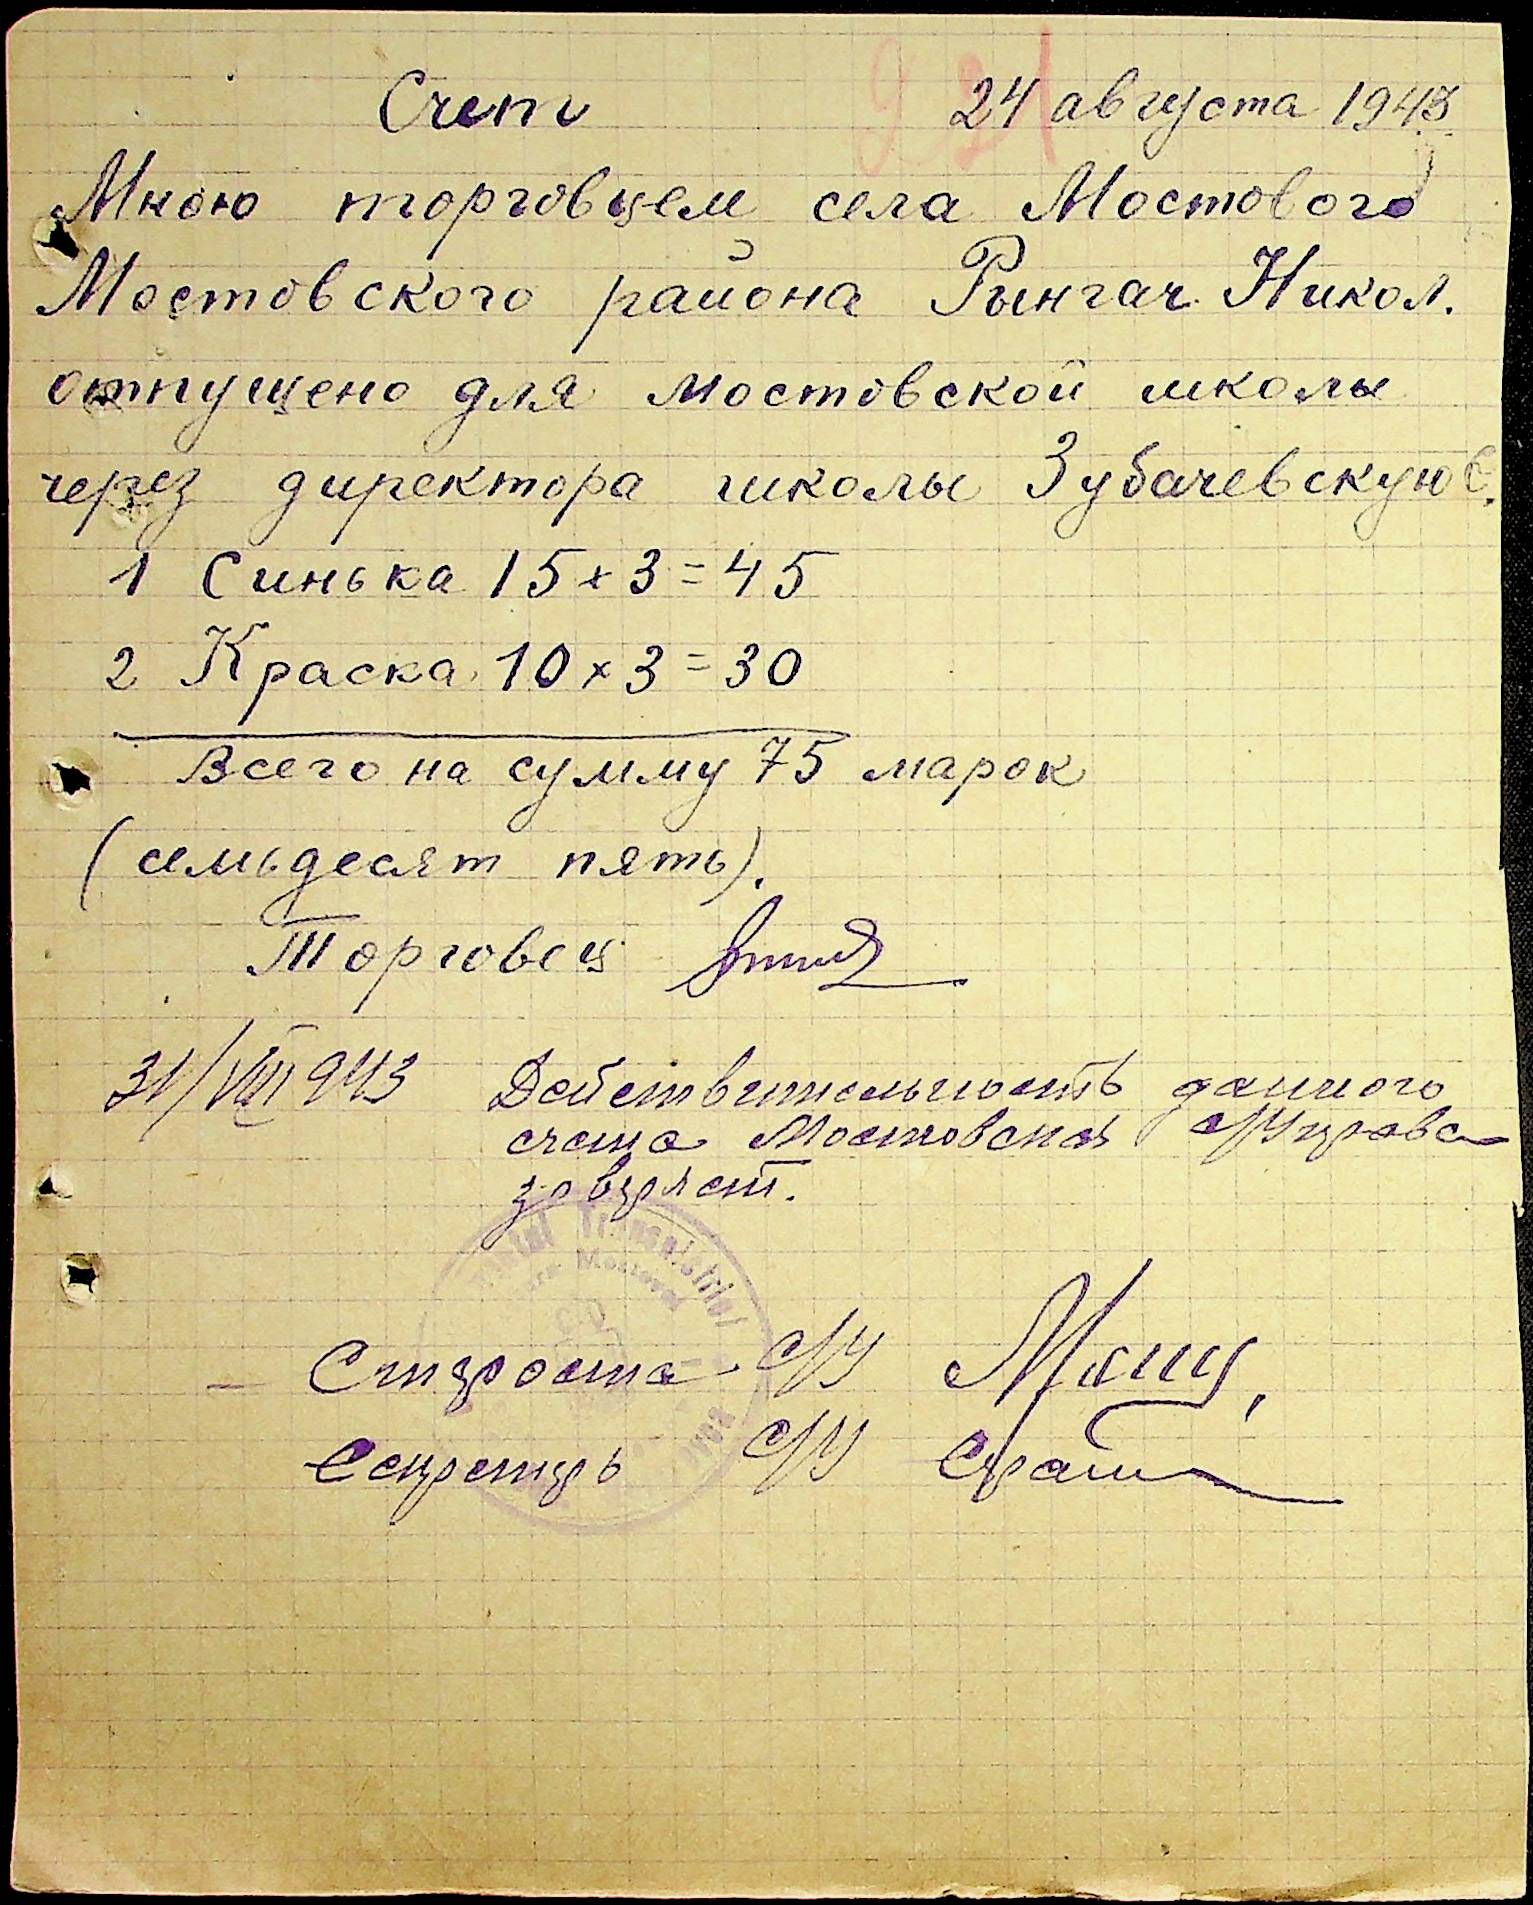 Счет 24 августа 1943
Мною торговцем села Мостового
Мостовского района Рынгач Никол.
отпущено для мостовской школы
через директора школы Зубачевскую С.
1 Синька 15 x 3 = 45
2 Краска 10 x 3 = 30
Всего на сумму 75 марок
(семьдесят пять).
Торговец
31/VIII 943 Действительность данного
счета Мостовская с/Управа
заверяет.
Transnistriei
Mostovoi
Староста с/У
Секретарь с/У